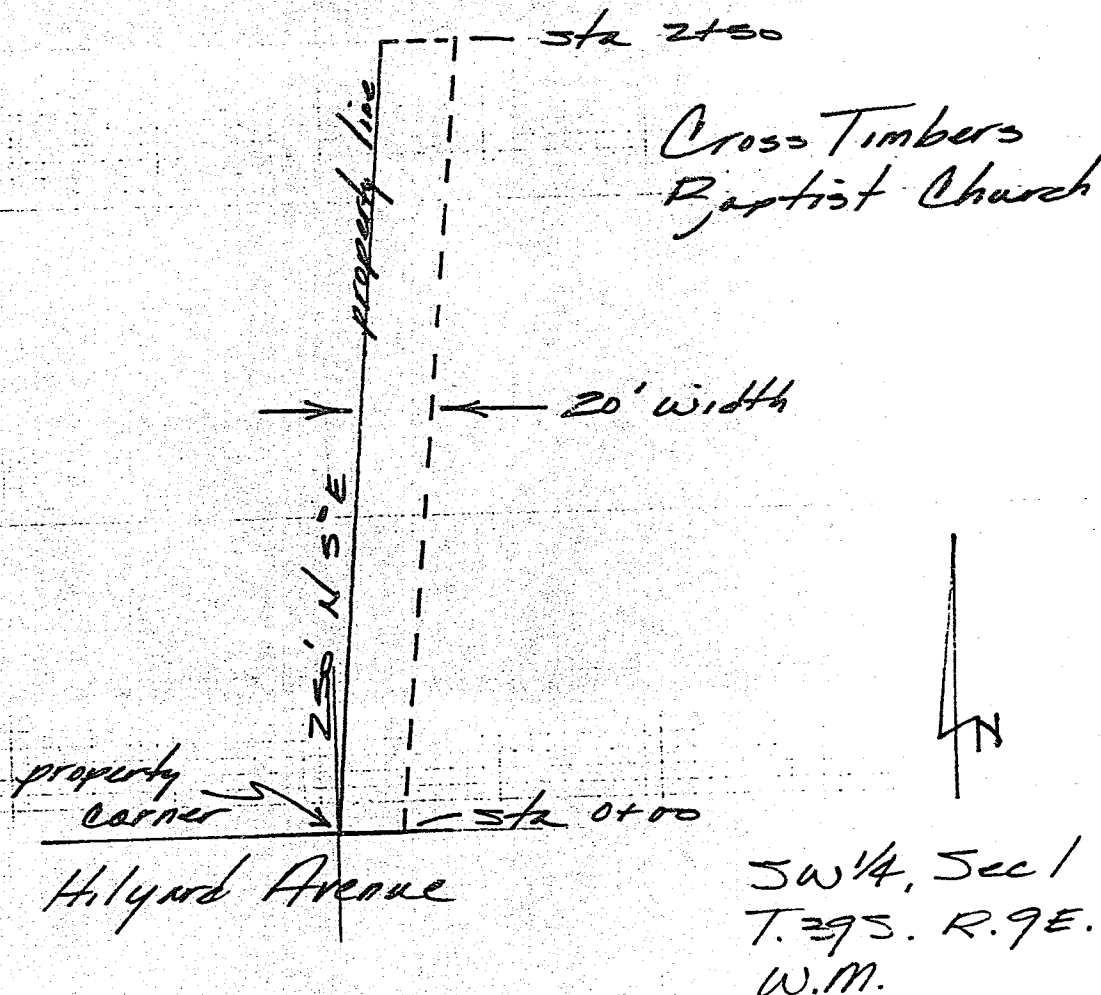 sta 2+50
Cross Timbers
Baptist Church
property line
20' width
250' N 5° E
property
corner
sta 0+00
Hilyard Avenue
N
SW 1/4, Sec 1
T.39S. R.9E.
W.M.